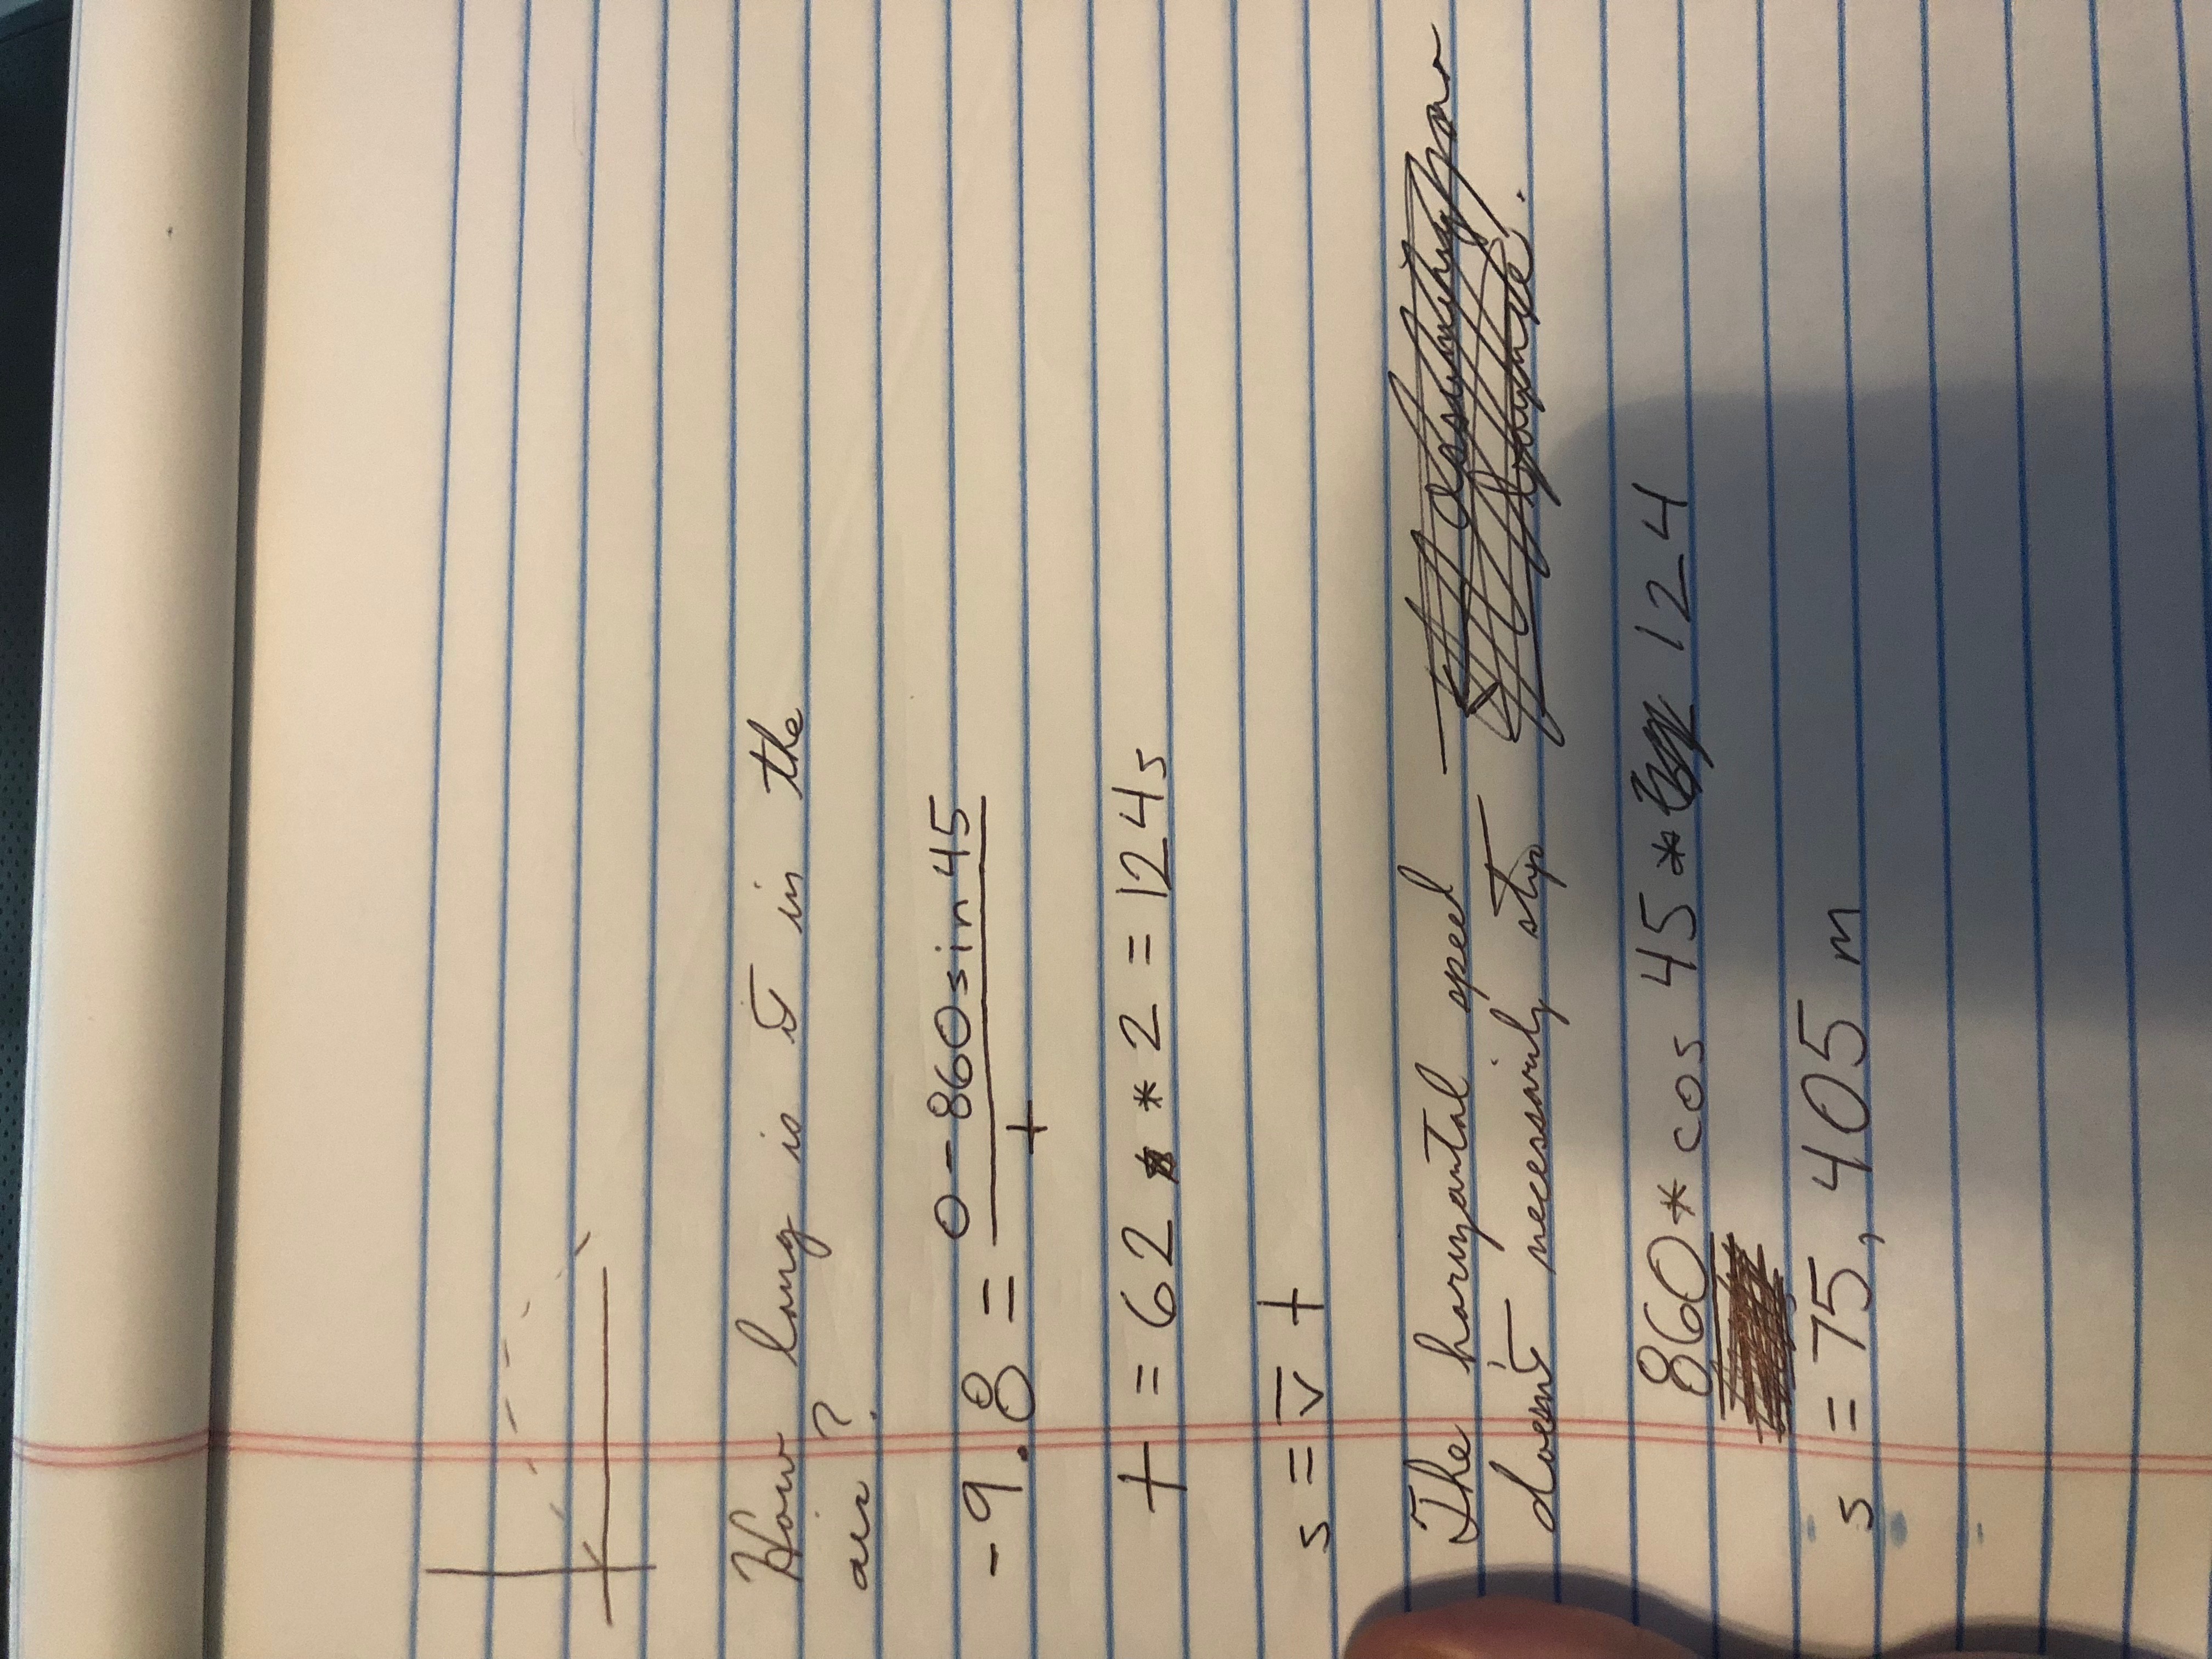 How long is it in the
air?
-9.8 = 0 - 860 sin 45
t
t = 62 * 2 = 124s
s = v̅ t
The horizontal speed
doesn't necessarily stop
860 * cos 45 * 124
s = 75,405 m